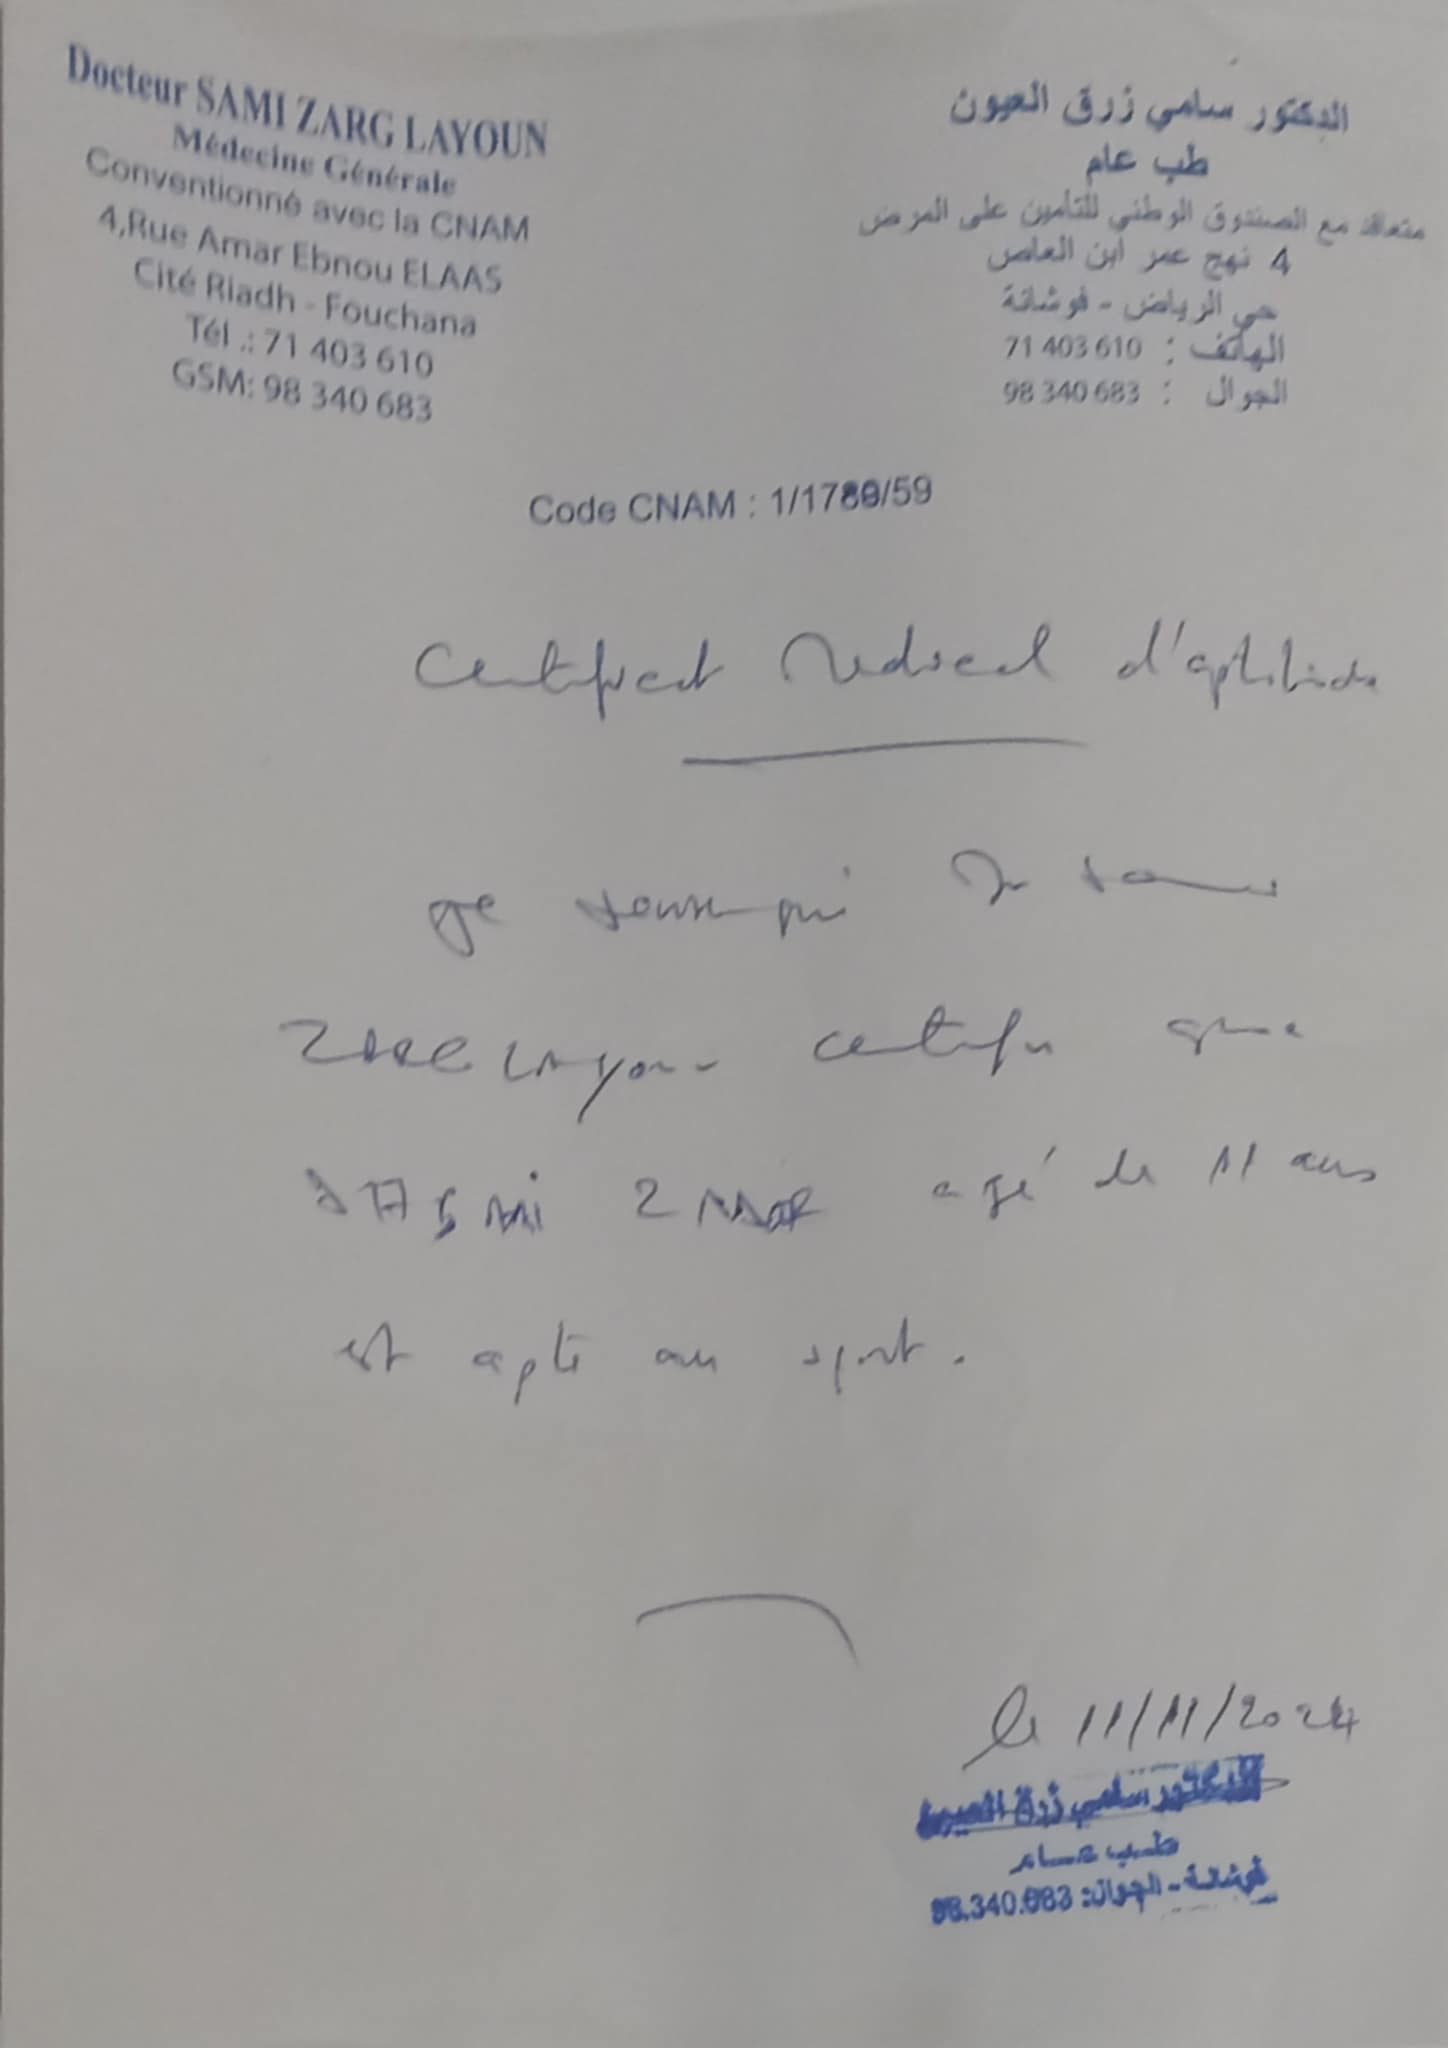 Docteur SAMI ZARG LAYOUN
Médecine Générale
Conventionné avec la CNAM
4,Rue Amar Ebnou ELAAS
Cité Riadh - Fouchana
Tél .: 71 403 610
GSM: 98 340 683
الدكتور سامي زرق العيون
طب عام
متعاقد مع الصندوق الوطني للتأمين على المرض
4 نهج عمر ابن العاص
حي الرياض - فوشانة
الهاتف : 71 403 610
الجوال : 98 340 683
Code CNAM : 1/1789/59
Certificat Médical d'aptitude
Je soussigné Dr Sami
ZARG Layoun certifie que
agé de 11 ans
est apte au sport.
le 11/11/2024
الدكتور سامي زرق العيون
طب عام
فوشانة - الجوال: 98.340.683